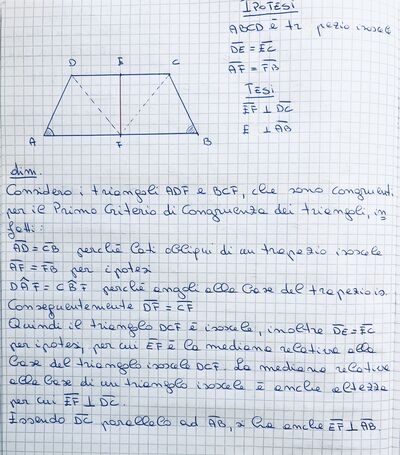 IPOTESI
ABCD è tr pezio isoscele
DE = EC
AF = FB
TESI
EF ⊥ DC
E ⊥ AB
D E C
A F B
dim.
Considero i triangoli ADF e BCF, che sono congruenti
per il Primo Criterio di Congruenza dei triangoli, in
fatti:
AD = CB perché lati obliqui di un trapezio isoscele
AF = FB per ipotesi
DÂF = CB̂F perché angoli alla base del trapezio is.
Conseguentemente DF = CF
Quindi il triangolo DCF è isoscele, inoltre DE = EC
per ipotesi, per cui EF è la mediana relativa alla
base del triangolo isoscele DCF. La mediana relativa
alla base di un triangolo isoscele è anche altezza
per cui EF ⊥ DC.
Essendo DC parallelo ad AB, si ha anche EF ⊥ AB.